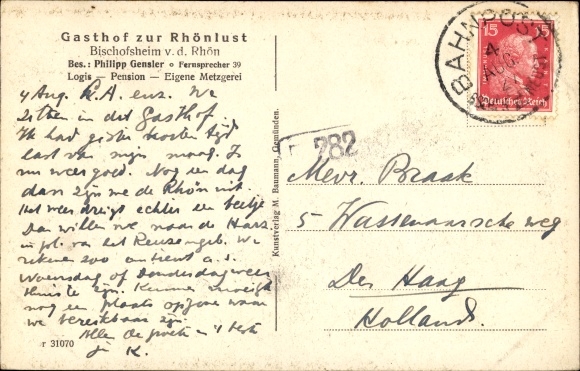 Gasthof zur Rhönlust
Bischofsheim v. d. Rhön
Bes.: Philipp Gensler o Fernsprecher 39
Logis — Pension — Eigene Metzgerei
4 Aug. L.A. enz. We
zitten in dit Gasthof
Ik had gister
last van mijn maag. Is
nu weer goed. Nog een dag
dan zijn we de Rhön uit
Het weer dreigt echter een beetje
Dan willen we naar de Harz
in pl. van het Reuzengeb. We
rekenen zoo omtrent a.s.
Woensdag of Donderdag weer
thuis te zijn. Kunnen
nog een plaats opgeven waar
we bereikbaar zijn.
Allen de groeten en 't beste
je K.
r 31070
Kunstverlag M. Baumann, Gemünden.
282
BAHNPOST
4.
AUG
15 15
Deutsches Reich
Mevr. Braak
5 Wassenaarsche weg
Den Haag
Holland.